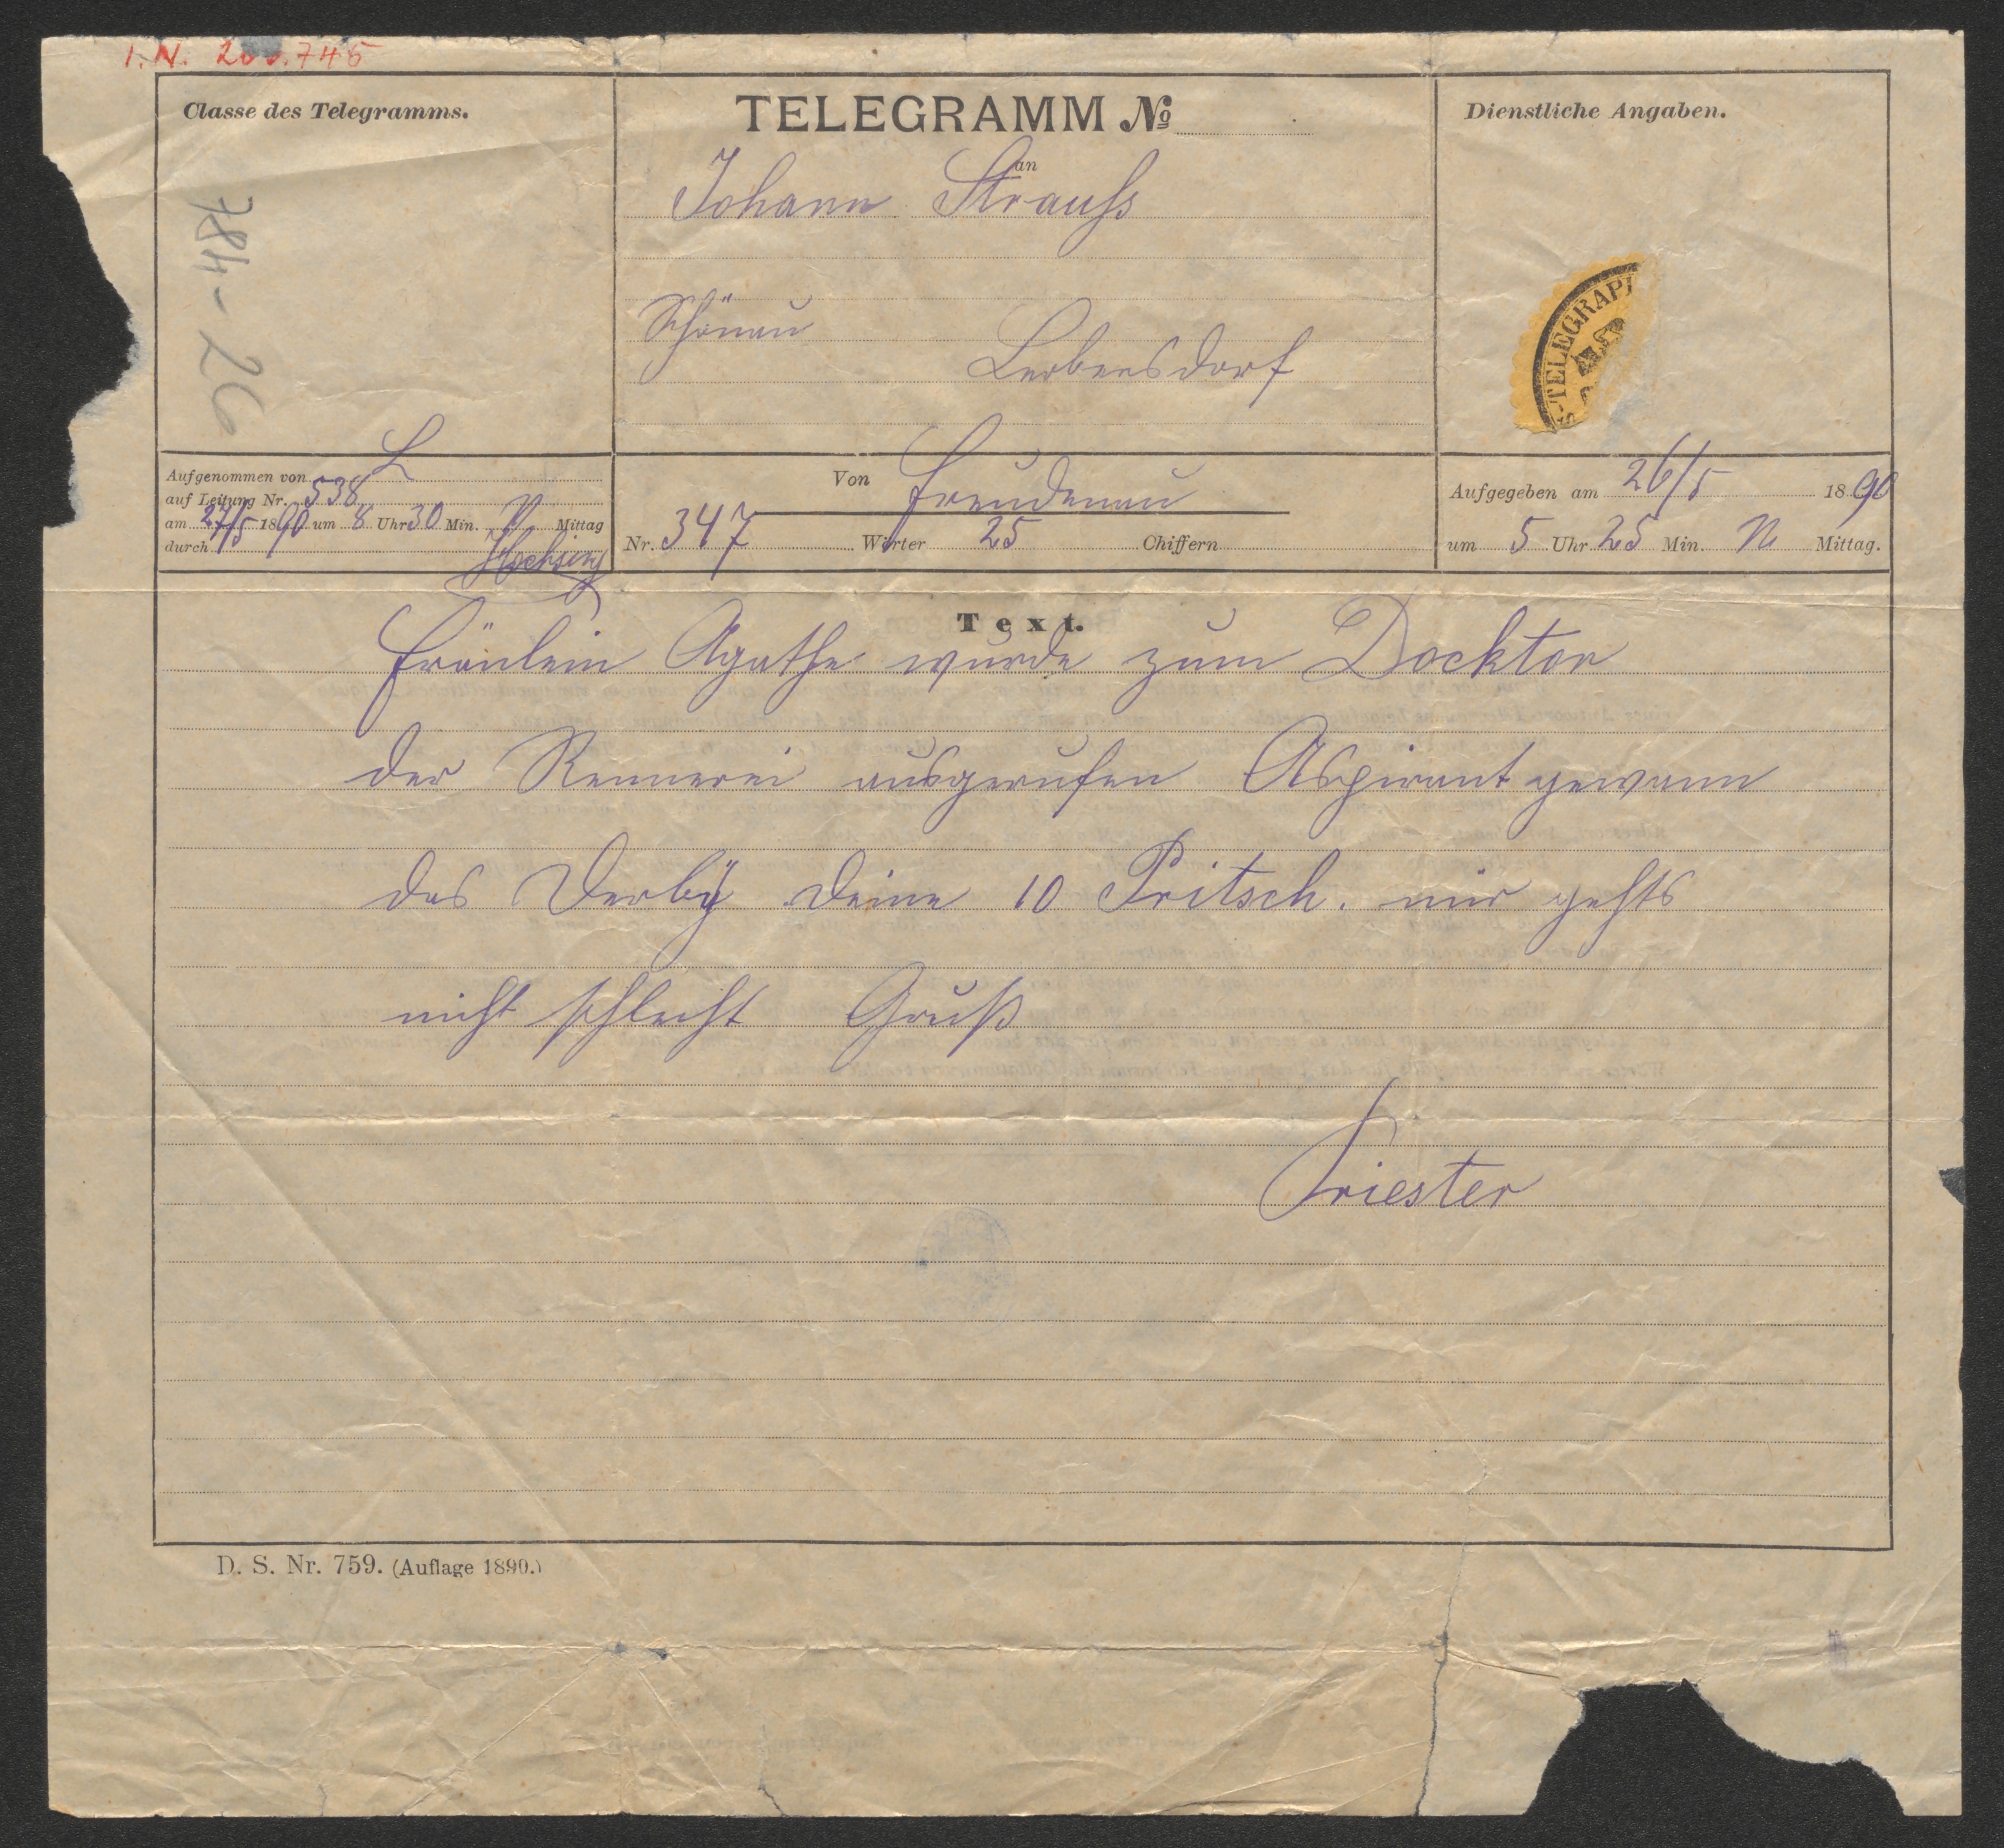 I. N. 200.745
Classe des Telegramms.
784-26
TELEGRAMM No
an
Johann Strauss
Schönau
Leobersdorf
Dienstliche Angaben.
-TELEGRAPH
Aufgenommen von L
auf Leitung Nr. 538
am 27/5 1890 um 8 Uhr 30 Min. V Mittag
durch
Von Freudenau
Nr. 347 Wörter 25 Chiffern
Aufgegeben am 26/5 1890
um 5 Uhr 25 Min. N Mittag.
Text.
Fräulein Agathe wurde zum Docktor
der Rennerei ausgerufen Aspirant gewann
das Derby deine 10 Pritsch. mir gehts
nicht schlecht Gruß
Priester
D. S. Nr. 759. (Auflage 1890.)